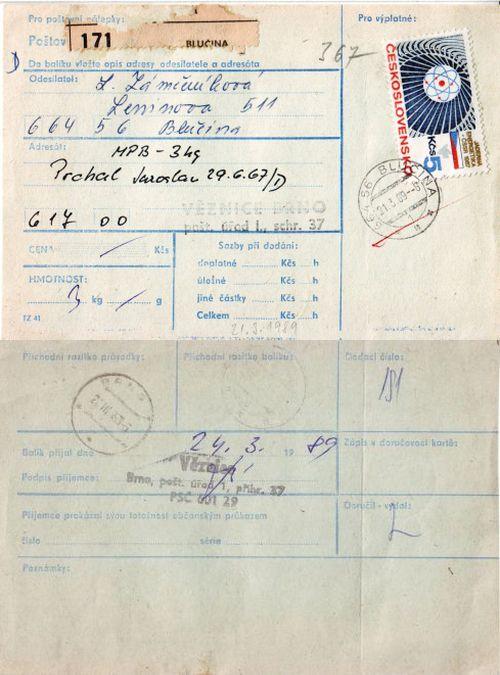 Pro poštovní nálepky:
Pro výplatné:
Poštov
171
BLUČINA
367
Do balíku vložte opis adresy odesílatele a adresáta
Odesílatel:
L. Zámečníková
Leninova 511
664 56 Blučina
ČESKOSLOVENSKO
5 Kčs
664 56 BLUČINA
Adresát:
MPB - 3 kg
Prchal Jaroslav 29.6.67/D
VĚZNICE BRNO
pošt. úřad 1., schr. 37
617 00
CENA
Kčs
Sazby při dodání:
doplatné Kčs h
úložné Kčs h
jiné částky Kčs h
Celkem Kčs h
HMOTNOST:
3 kg / g
TZ 41
21.3.1989
Příchodní razítko průvodky:
Příchodní razítko balíku:
Dodací číslo:
BRNO
181
Balík přijal dne 24. 3. 1989
Zápis v doručovací kartě:
Věznice
Podpis příjemce:
Brno, pošt. úřad 1, přihr. 37
PSČ 601 29
Doručil - vydal:
Příjemce prokázal svou totožnost občanským průkazem
číslo série
Poznámky: